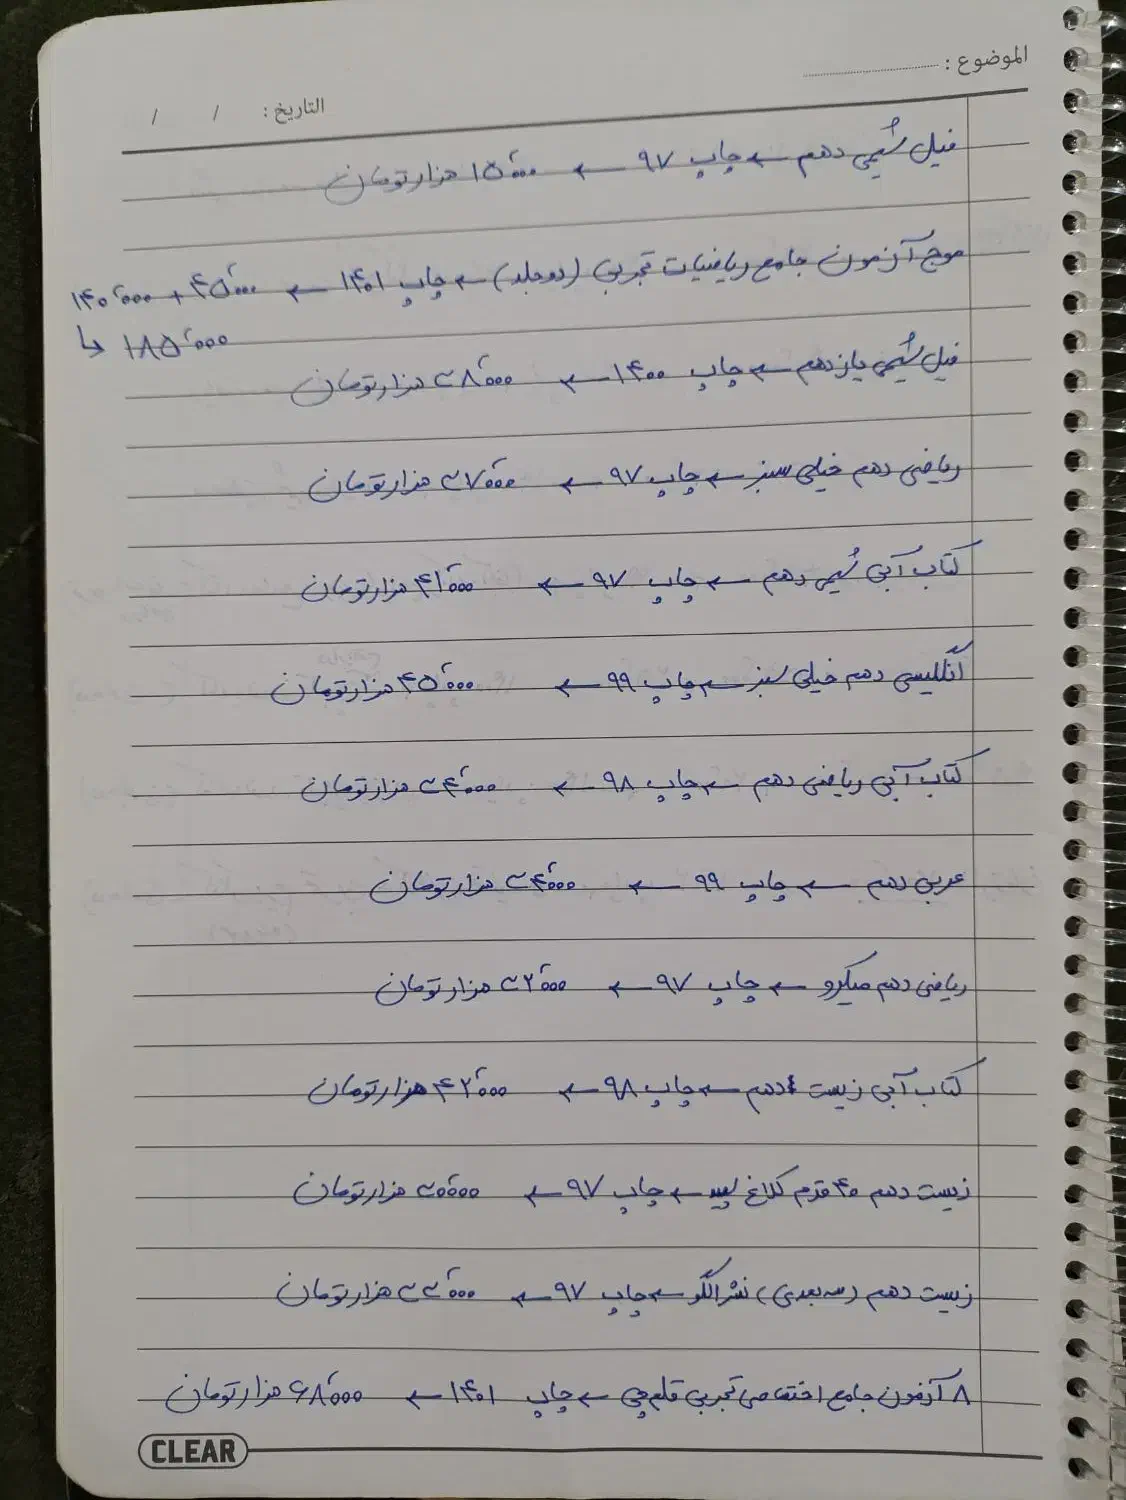 الموضوع :
التاریخ : / /
فیل شیمی دهم ← چاپ ۹۷ ← ۱۵٬۰۰۰ هزار تومان
موج آزمون جامع ریاضیات تجربی (دو جلد) ← چاپ ۱۴۰۱ ← ۴۵٬۰۰۰ + ۱۴۰٬۰۰۰
↳ ۱۸۵٬۰۰۰
فیل شیمی یازدهم ← چاپ ۱۴۰۰ ← ۳۸٬۰۰۰ هزار تومان
ریاضی دهم خیلی سبز ← چاپ ۹۷ ← ۳۷٬۰۰۰ هزار تومان
کتاب آبی شیمی دهم ← چاپ ۹۷ ← ۴۱٬۰۰۰ هزار تومان
انگلیسی دهم خیلی سبز ← چاپ ۹۹ ← ۴۵٬۰۰۰ هزار تومان
کتاب آبی ریاضی دهم ← چاپ ۹۸ ← ۳۴٬۰۰۰ هزار تومان
عربی دهم ← چاپ ۹۹ ← ۳۴٬۰۰۰ هزار تومان
ریاضی دهم میکرو ← چاپ ۹۷ ← ۳۲٬۰۰۰ هزار تومان
کتاب آبی زیست دهم ← چاپ ۹۸ ← ۴۲٬۰۰۰ هزار تومان
زیست دهم ۴۰ قدم کلاغ سپید ← چاپ ۹۷ ← ۲۰٬۰۰۰ هزار تومان
زیست دهم (سه بعدی) نشر الگو ← چاپ ۹۷ ← ۳۳٬۰۰۰ هزار تومان
۸ آزمون جامع اختصاصی تجربی قلم چی ← چاپ ۱۴۰۱ ← ۶۸٬۰۰۰ هزار تومان
CLEAR